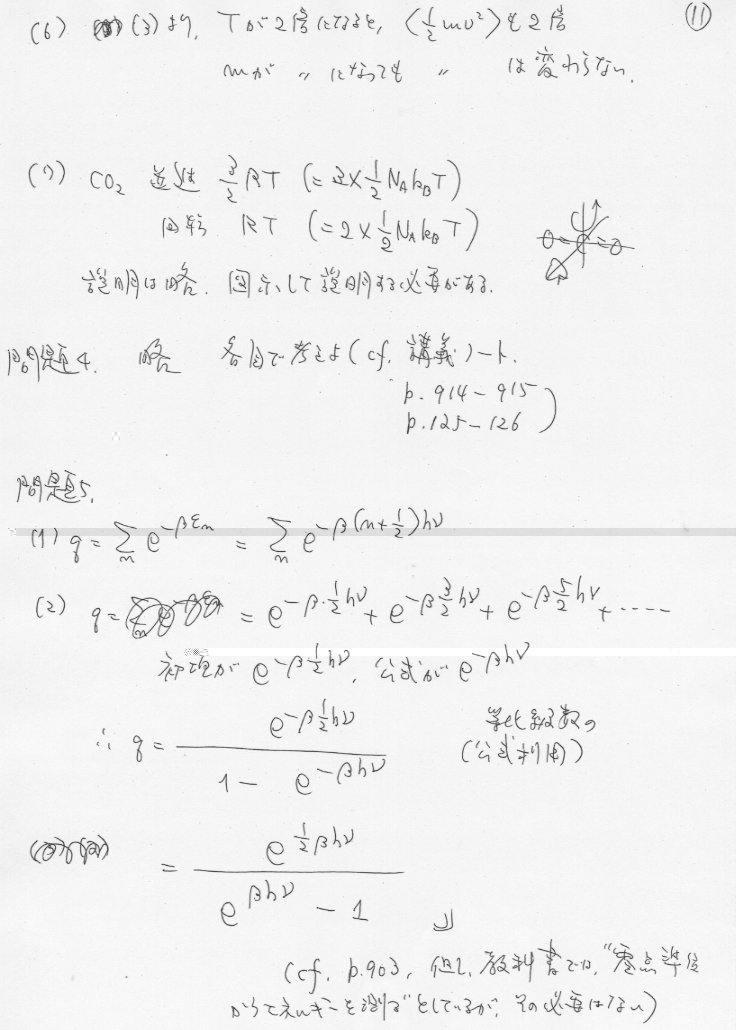 ⑪
(6) (3)より、Tが2倍になると、⟨1/2 mv²⟩も2倍
mが 〃 になっても 〃 は変わらない。
(7) CO₂ 並進 3/2 RT (= 3×1/2 N_A k_B T)
回転 RT (= 2×1/2 N_A k_B T)
説明は略。図示して説明する必要がある。
問題4. 略 各自で考えよ (cf. 講義ノート.
p. 914-915
p. 125-126 )
問題5.
(1) q = Σ_n e^{-βε_n} = Σ_n e^{-β(n+1/2)hν}
(2) q = = e^{-β·1/2 hν} + e^{-β 3/2 hν} + e^{-β 5/2 hν} + ‥‥
初項が e^{-β 1/2 hν}、公式が e^{-βhν}
∴ q = e^{-β 1/2 hν} / (1 - e^{-βhν}) 等比級数の
(公式利用)
= e^{1/2 βhν} / (e^{βhν} - 1) 」
(cf. p.903, 但し、教科書では、"零点準位
からエネルギーを測る"としているが、その必要はない)